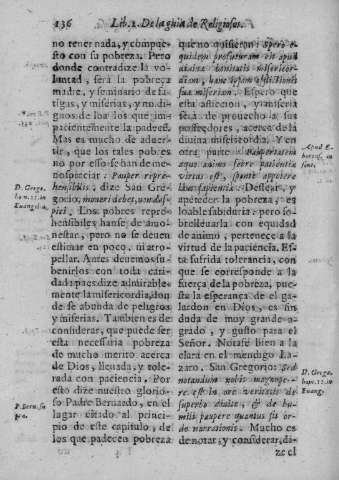 136 Lib. 2. De la guia de Religiosos.
no tener nada, y compues-
to con su pobreza. Pero
donde contradize la vo-
luntad, será la pobreza
madre, y seminario de fa-
tigas, y miserias, y no di-
gnos de loa los que im-
pacientemente la padecẽ.
Mas es mucho de adver-
tir, que los tales pobres
no por esso se han de me-
nospreciar: Pauper repre-
hensibilis, dize San Gre-
gorio, moneri debet, non despi-
pici, Los pobres repre-
hensibles hanse de amo-
nestar, pero no se deuen
estimar en poco, ni atro-
pellar. Antes deuemos su-
benirlos con toda cari-
dad: pues dize admirable-
mente la misericordia, don
de se abunda de peligros
y miserias. Tambien es de
considerar, que puede ser
esta necessaria pobreza
de mucho merito acerca
de Dios, lleuada, y tole-
rada con paciencia. Por
esto dize nuestro glorio-
so Padre Bernardo, en el
lugar citado al princi-
pio de este capitulo, de
los que padecen pobreza
D. Grego.
hom.
in
Euangelia.
P. Bern. su
pra.
que no quisieron: spero e-
quidem profuturam eis apud
diuina bonitatis misericor-
diam, hanc ipsam afflictionis
suæ miseriam. Espero que
esta aflicion, y miseria
será de prouecho a sus
posseedores, acerca de la
diuina misericordia. Y en
otra
quo animo ferre patientia
virtus est, sponte appetere
laus sapientiæ. Dessear, y
apetecer la pobreza, es
loable sabiduria: pero so-
brelleuarla con equidad
de animo, pertenece a la
virtud de la paciencia. Es-
ta sufrida tolerancia, con
que se corresponde a la
fuerça de la pobreza, pues-
ta la esperança de el ga-
lardon en Dios, es sin
duda de muy grande a-
grado, y gusto para el
Señor. Notase bien a la
clara en el mendigo La-
zaro. San Gregorio: sed
notandum nobis magnope-
re est in ore veritatis de
superbo diuite, & de hu-
mili paupere quantus sit or-
do narrationis. Mucho es
de notar, y considerar, di-
ze el
Apud E-
sent.
D. Grego.
hom.
in
Euang.